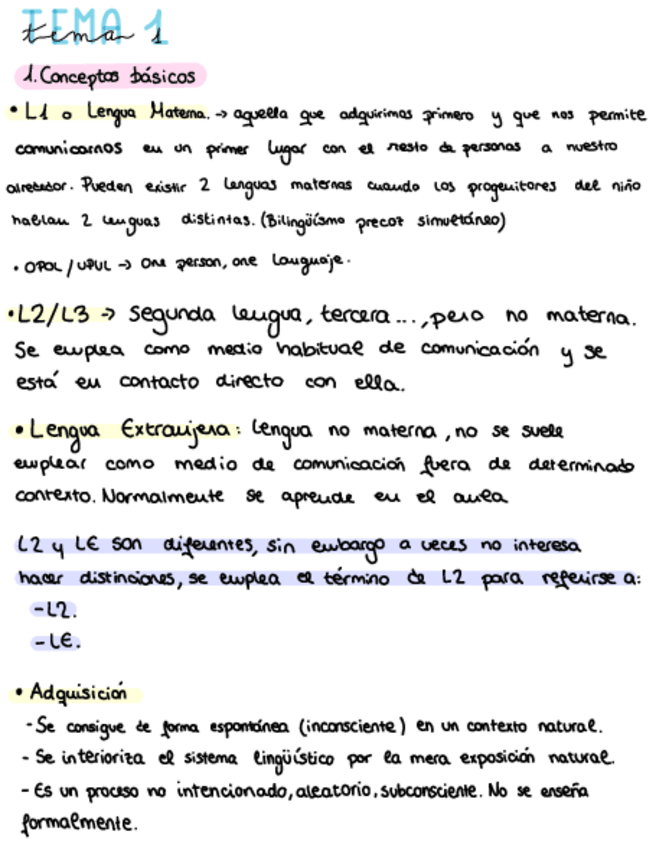 TEMA 1
tema 1
1. Conceptos básicos
• L1 o Lengua Materna. → aquella que adquirimos primero y que nos permite
comunicarnos en un primer lugar con el resto de personas a nuestro
alrededor. Pueden existir 2 lenguas maternas cuando los progenitores del niño
hablan 2 lenguas distintas. (Bilingüismo precoz simultáneo)
• OPOL / UPUL → One person, one language.
• L2/L3 → Segunda lengua, tercera ..., pero no materna.
Se emplea como medio habitual de comunicación y se
está en contacto directo con ella.
• Lengua Extranjera: Lengua no materna, no se suele
emplear como medio de comunicación fuera de determinado
contexto. Normalmente se aprende en el aula
L2 y LE son diferentes, sin embargo a veces no interesa
hacer distinciones, se emplea el término de L2 para referirse a:
- L2.
- LE.
• Adquisición
- Se consigue de forma espontánea (inconsciente) en un contexto natural.
- Se interioriza el sistema lingüístico por la mera exposición natural.
- Es un proceso no intencionado, aleatorio, subconsciente. No se enseña
formalmente.